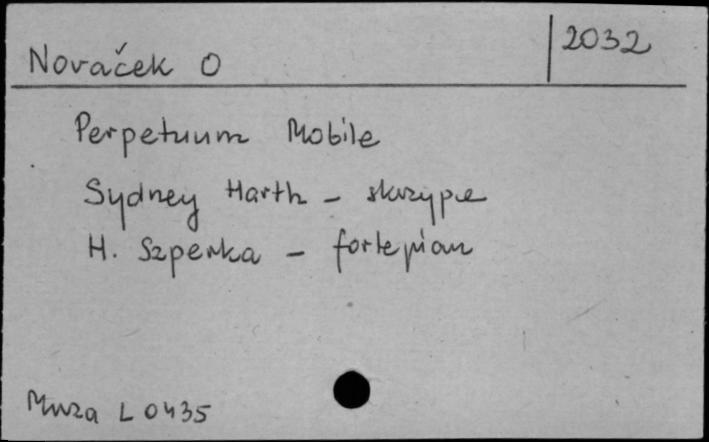 Novaček O
2032
Perpetuum Mobile
Sydney Harth - skrzypce
H. Szperka - fortepian
Muza L 0435